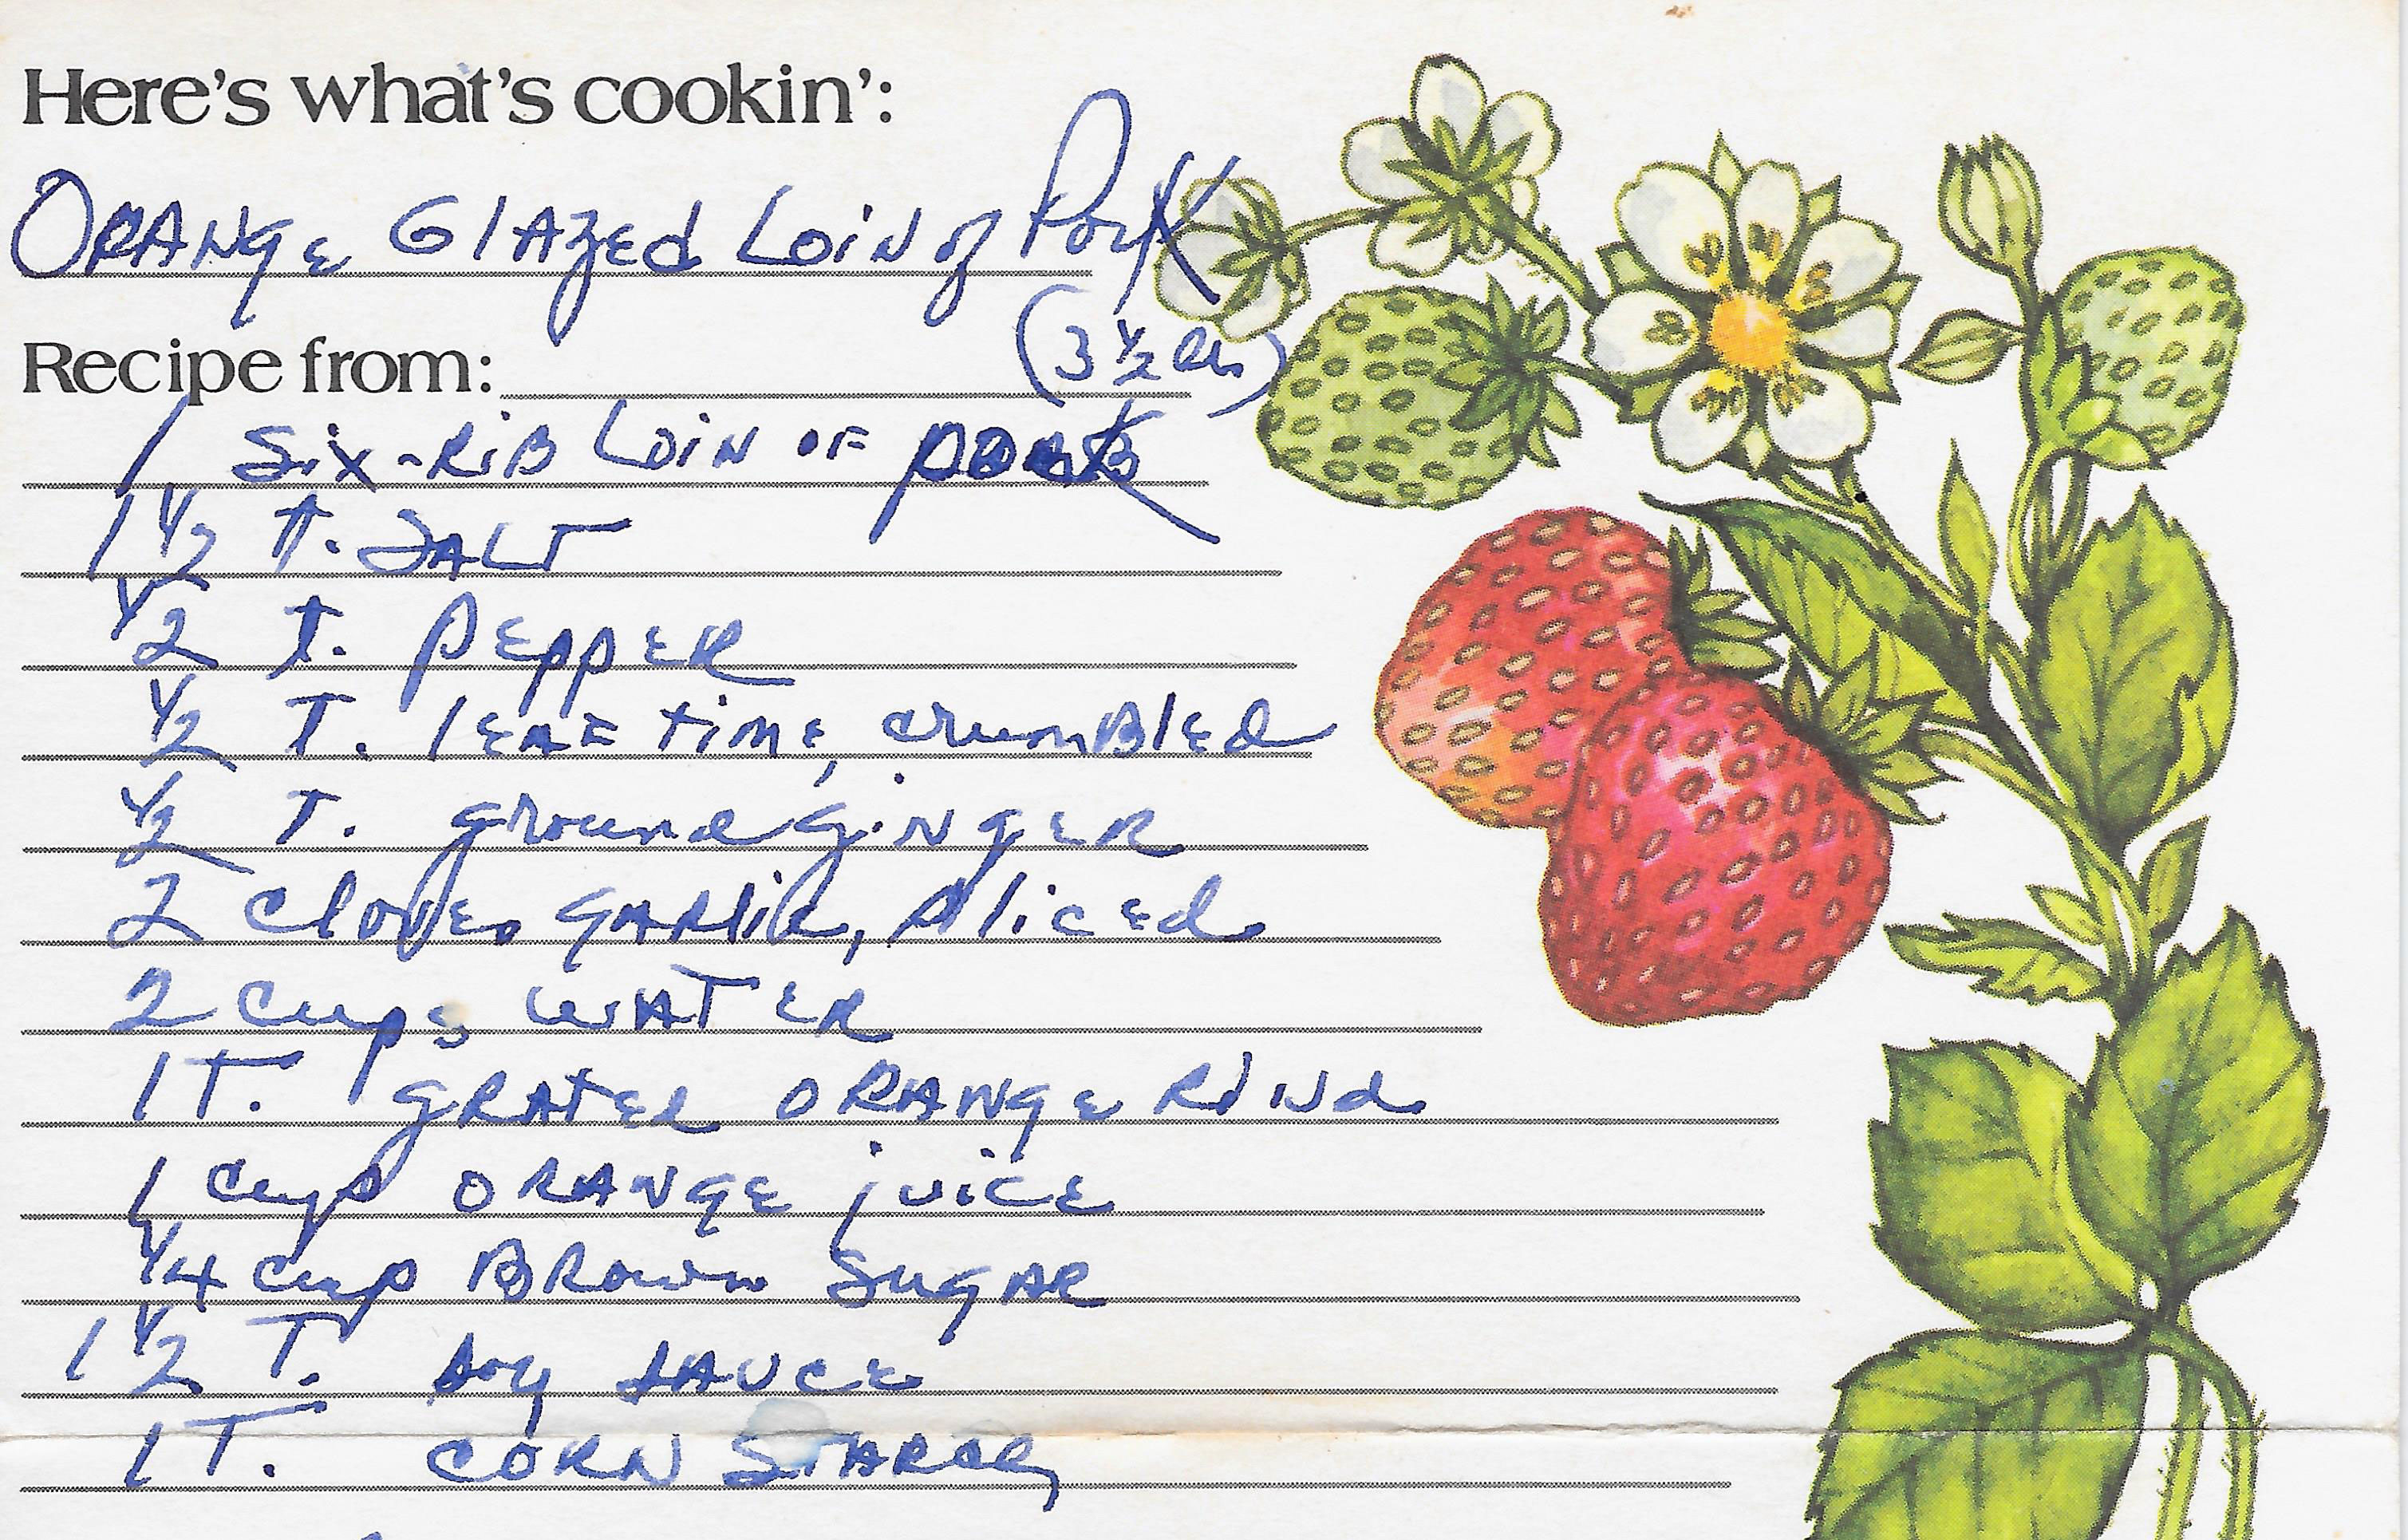 Here's what's cookin':
ORANGE GlAzed LoiN of Pork
(3 ½ lbs)
Recipe from:
1 Six-RiB LoiN OF PORK
1 ½ T. SALT
½ T. PEPPER
½ T. lEAF time, crumBled
½ T. ground giNgER
2 cloves gARlic, sliced
2 cups WATER
1 T. gRATEd ORANgE RiNd
1 cup ORANGE juicE
¼ cup BRown SugAR
1 ½ T. soy sAUCE
1 T. CORN STARCh